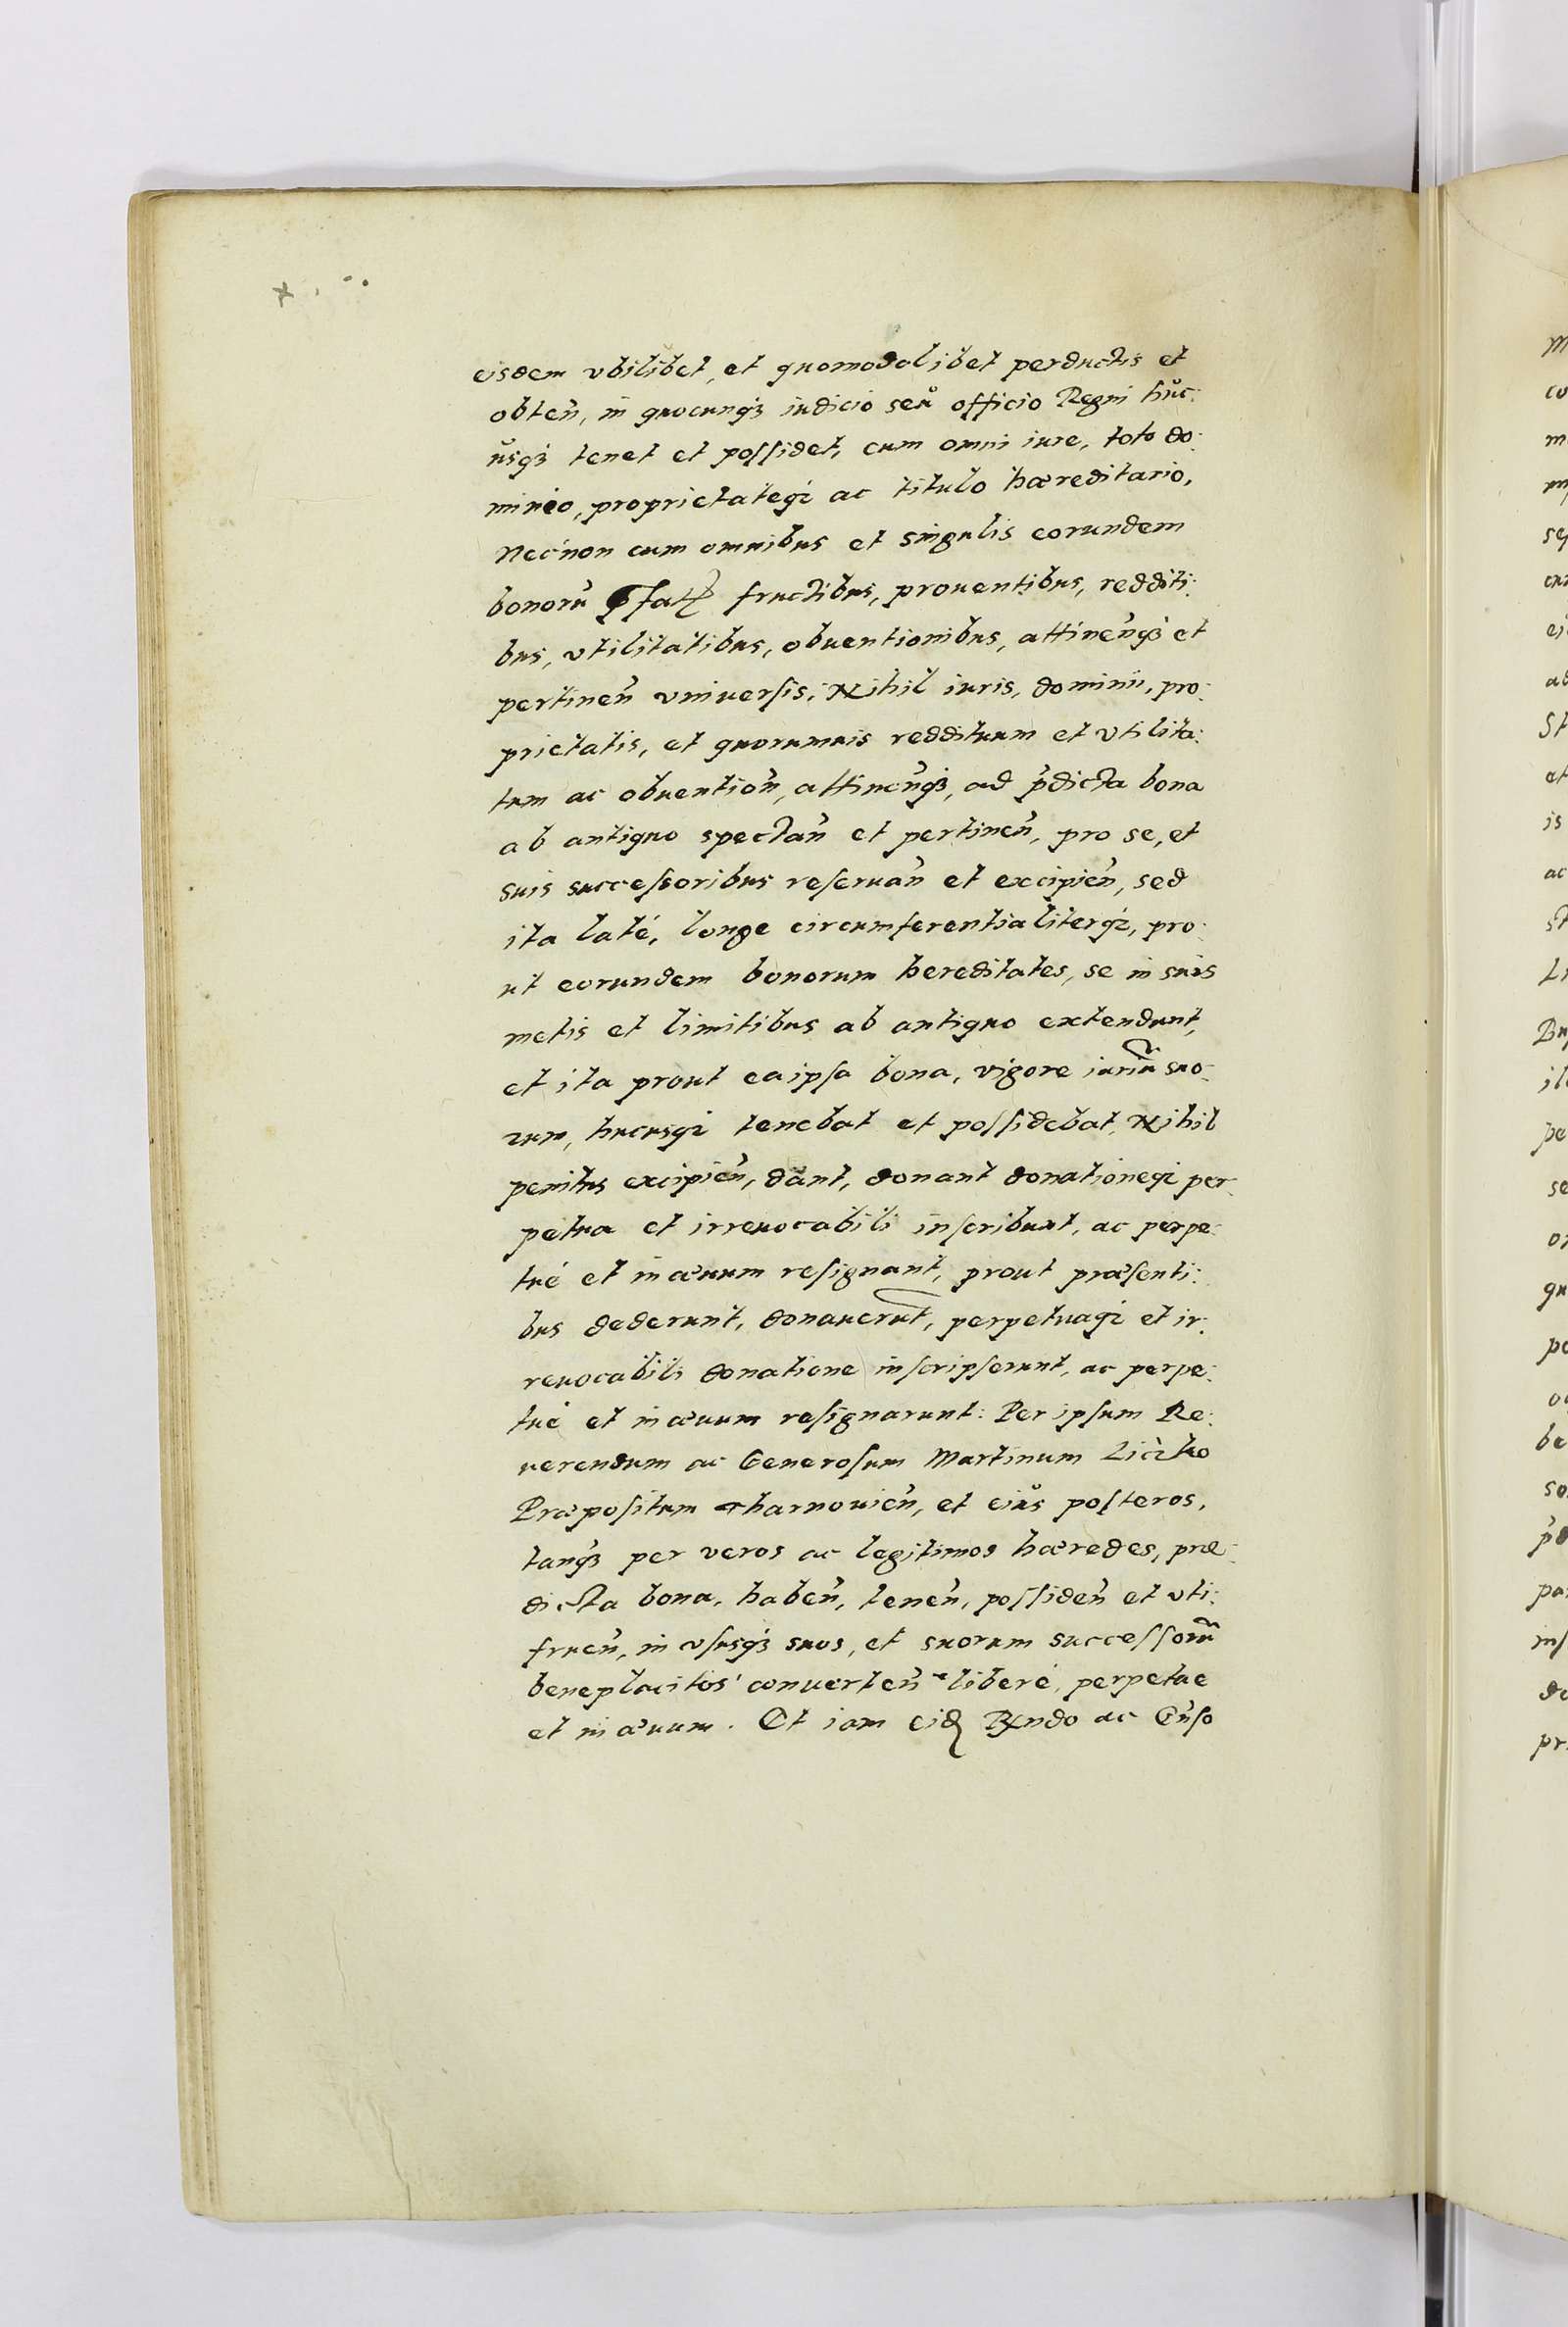 eisdem vbilibet, et quomodolibet perductis et
obten̄, in quocunqȝ iudicio seu officio Regni huc:
usqȝ tenet et poſſidet, cum omni iure, toto do:
minio, proprietateqȝ ac titulo hæreditario,
Necnon cum omnibus et singulis eorundem
bonorū fructibus, prouentibus, redditi:
bus, vtilitatibus, obuentionibus, attinen̄qȝ et
pertinen̄ vniuerſis; Nihil iuris, dominii, pro:
prietatis, et quorumuis reddituum et vtilita:
tum ac obuention̄, attinen̄qȝ, ad p̄dicta bona
ab antiquo spectan̄ et pertinen̄, pro se, et
suis succeſsoribus reſeruan̄ et excipien̄, sed
ita laté, longe circumferentialiterqȝ, pro:
ut eorundem bonorum hereditates, se in suis
metis et limitibus ab antiquo extendunt,
et ita prout ea ipſa bona, vigore iuriū suo:
rum, hucusqȝ tenebat et poſſidebat, Nihil
penitus excipien̄, dant, donant donationeqȝ per:
petua et irreuocabili inſcribunt, ac perpe:
tué et in æuum reſignant, prout præſenti:
bus dederunt, donauerūt, perpetuaqȝ et ir:
reuocabili donatione inſcripſerunt, ac perpe:
tué et in æuum reſignarunt: Per ipſum Re:
uerendum ac Generoſum Martinum Liczko
Præpoſitum Tharnouien̄, et eius poſteros,
tanqȝ per veros ac legitimos hæredes, præ:
dicta bona, haben̄, tenen̄, poſſiden̄ et vti:
fruen̄, in vſusqȝ suos, et suorum succeſſorū
beneplacitos conuerten̄ liberé, perpetue
et in æuum. Et iam eidꝫ Rndo ac Gn̄ſo